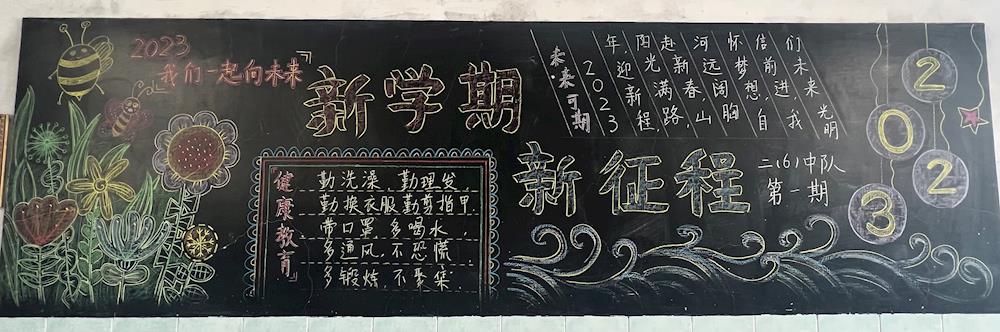 2023
我们一起向未来
『新学期
新征程
未来可期
2023
年,迎新程,
阳光满路,
赴新春,山
河远阔,胸
怀梦想,自
信前进,我
们未来光明
二(6)中队
第一期
2
0
2
3
『健康教育』
勤洗澡,勤理发,
勤换衣服勤剪指甲.
带口罩,多喝水,
多通风,不恐慌.
多锻炼,不聚集.